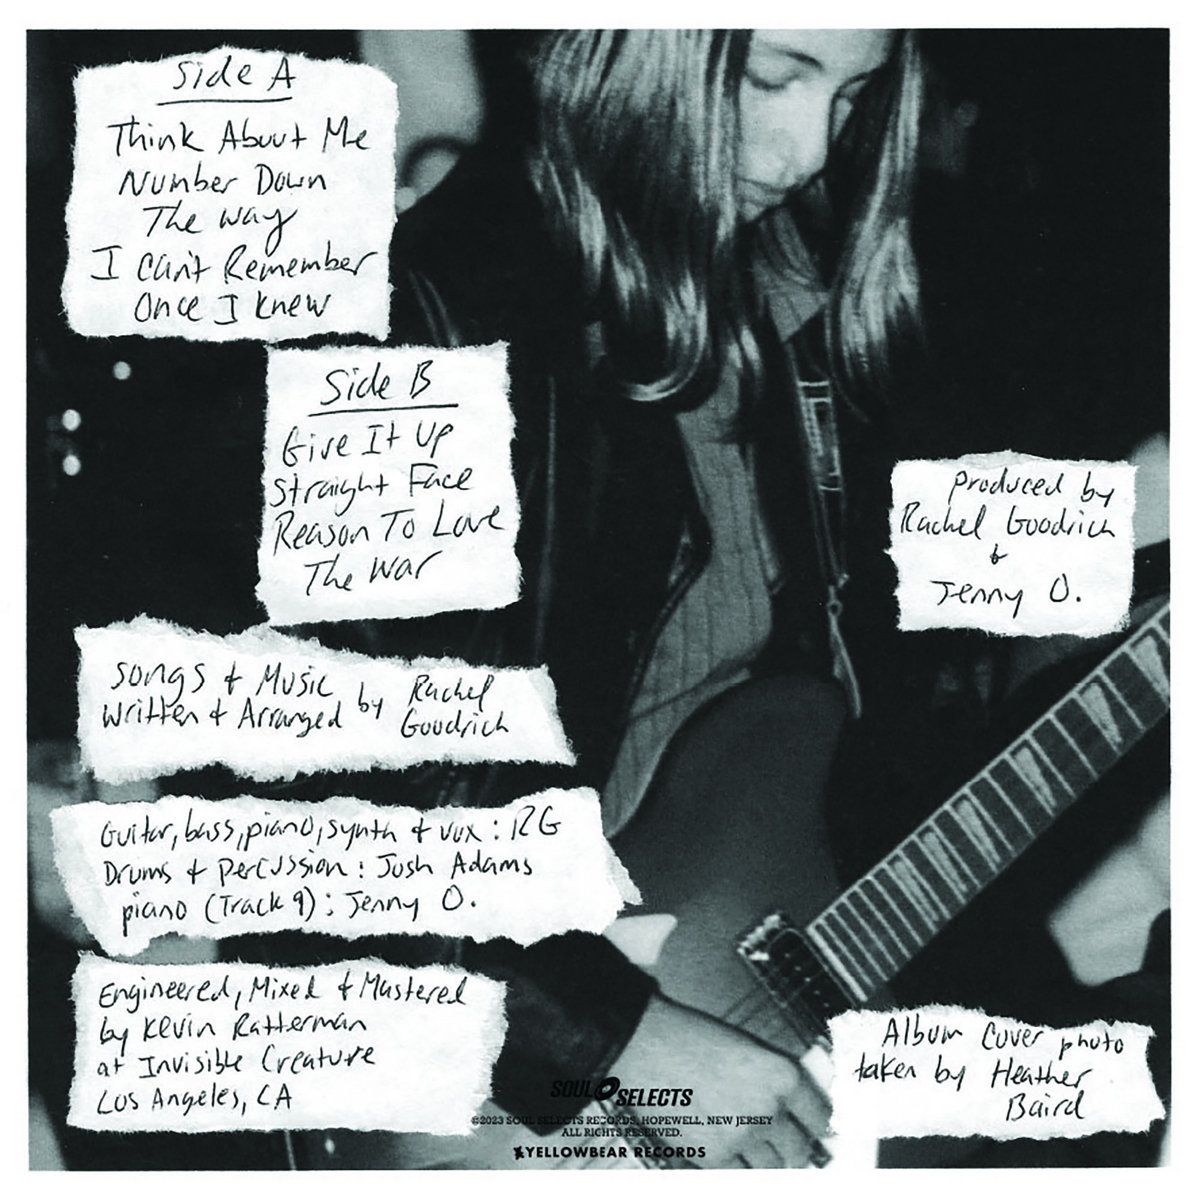 Side A
Think About Me
Number Down
The Way
I Can't Remember
Once I Knew
Side B
Give It Up
Straight Face
Reason To Love
The War
Produced by
Rachel Goodrich
&
Jenny O.
Songs & Music
Written & Arranged by Rachel
Goodrich
Guitar, bass, piano, synth & vox: RG
Drums & Percussion: Josh Adams
piano (Track 9): Jenny O.
Engineered, Mixed & Mastered
by Kevin Ratterman
at Invisible Creature
Los Angeles, CA
Album Cover photo
taken by Heather
Baird
SOUL SELECTS
©2023 SOUL SELECTS RECORDS, HOPEWELL, NEW JERSEY
ALL RIGHTS RESERVED.
YELLOWBEAR RECORDS